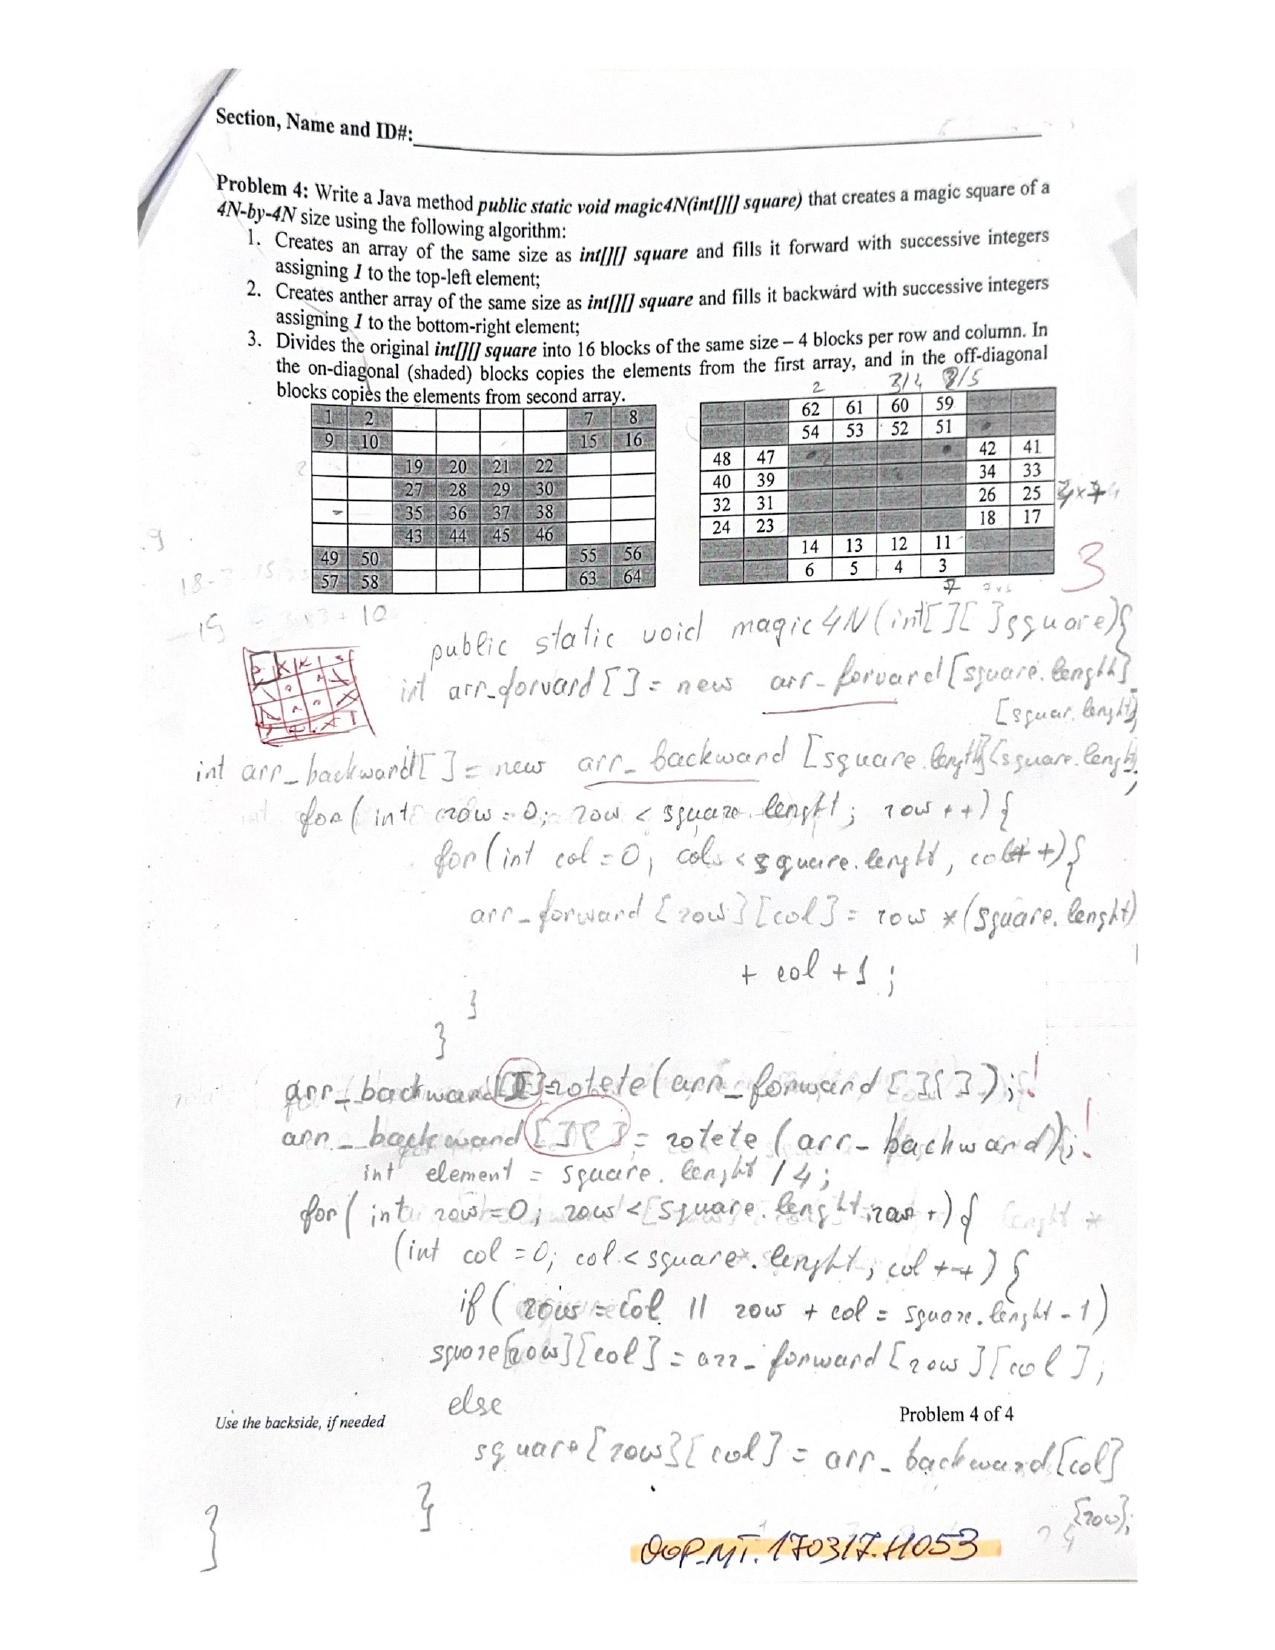 Section, Name and ID#:
Problem 4: Write a Java method public static void magic4N(int[][] square) that creates a magic square of a
4N-by-4N size using the following algorithm:
1. Creates an array of the same size as int[][] square and fills it forward with successive integers
assigning 1 to the top-left element;
2. Creates anther array of the same size as int[][] square and fills it backward with successive integers
assigning 1 to the bottom-right element;
3. Divides the original int[][] square into 16 blocks of the same size – 4 blocks per row and column. In
the on-diagonal (shaded) blocks copies the elements from the first array, and in the off-diagonal
blocks copies the elements from second array.
2 3/4
1 2 7 8
9 10 15 16
19 20 21 22
27 28 29 30
35 36 37 38
43 44 45 46
49 50 55 56
57 58 63 64
62 61 60 59
54 53 52 51
48 47 42 41
40 39 34 33
32 31 26 25
24 23 18 17
14 13 12 11
6 5 4 3
3
public static void magic4N(int[][]square){
int arr_forvard[] = new arr_forvard[square.length]
[squar.lenght]
int arr_backward[] = new arr_backward [square.length][square.length]
;
for(int row = 0; row < square.lenght; row ++) {
for(int col = 0; col < square.lenght, col++){
arr_forward [row][col] = row *(square.lenght)
+ col +1;
}
}
arr_backward[][]=rotete(arr_forward[][]);!
arr_backward[][] = rotete (arr_backward);!
int element = square.lenght /4;
for(int row=0; row<[square.lenght;row +){
(int col =0; col<square.lenght; col++){
if( row = col || row + col = square.lenght -1)
square[row][col] = arr_forward[row][col];
else
Use the backside, if needed
Problem 4 of 4
square[row][col] = arr_backward[col]
[row];
}
}
OOP.MT.170317.H053